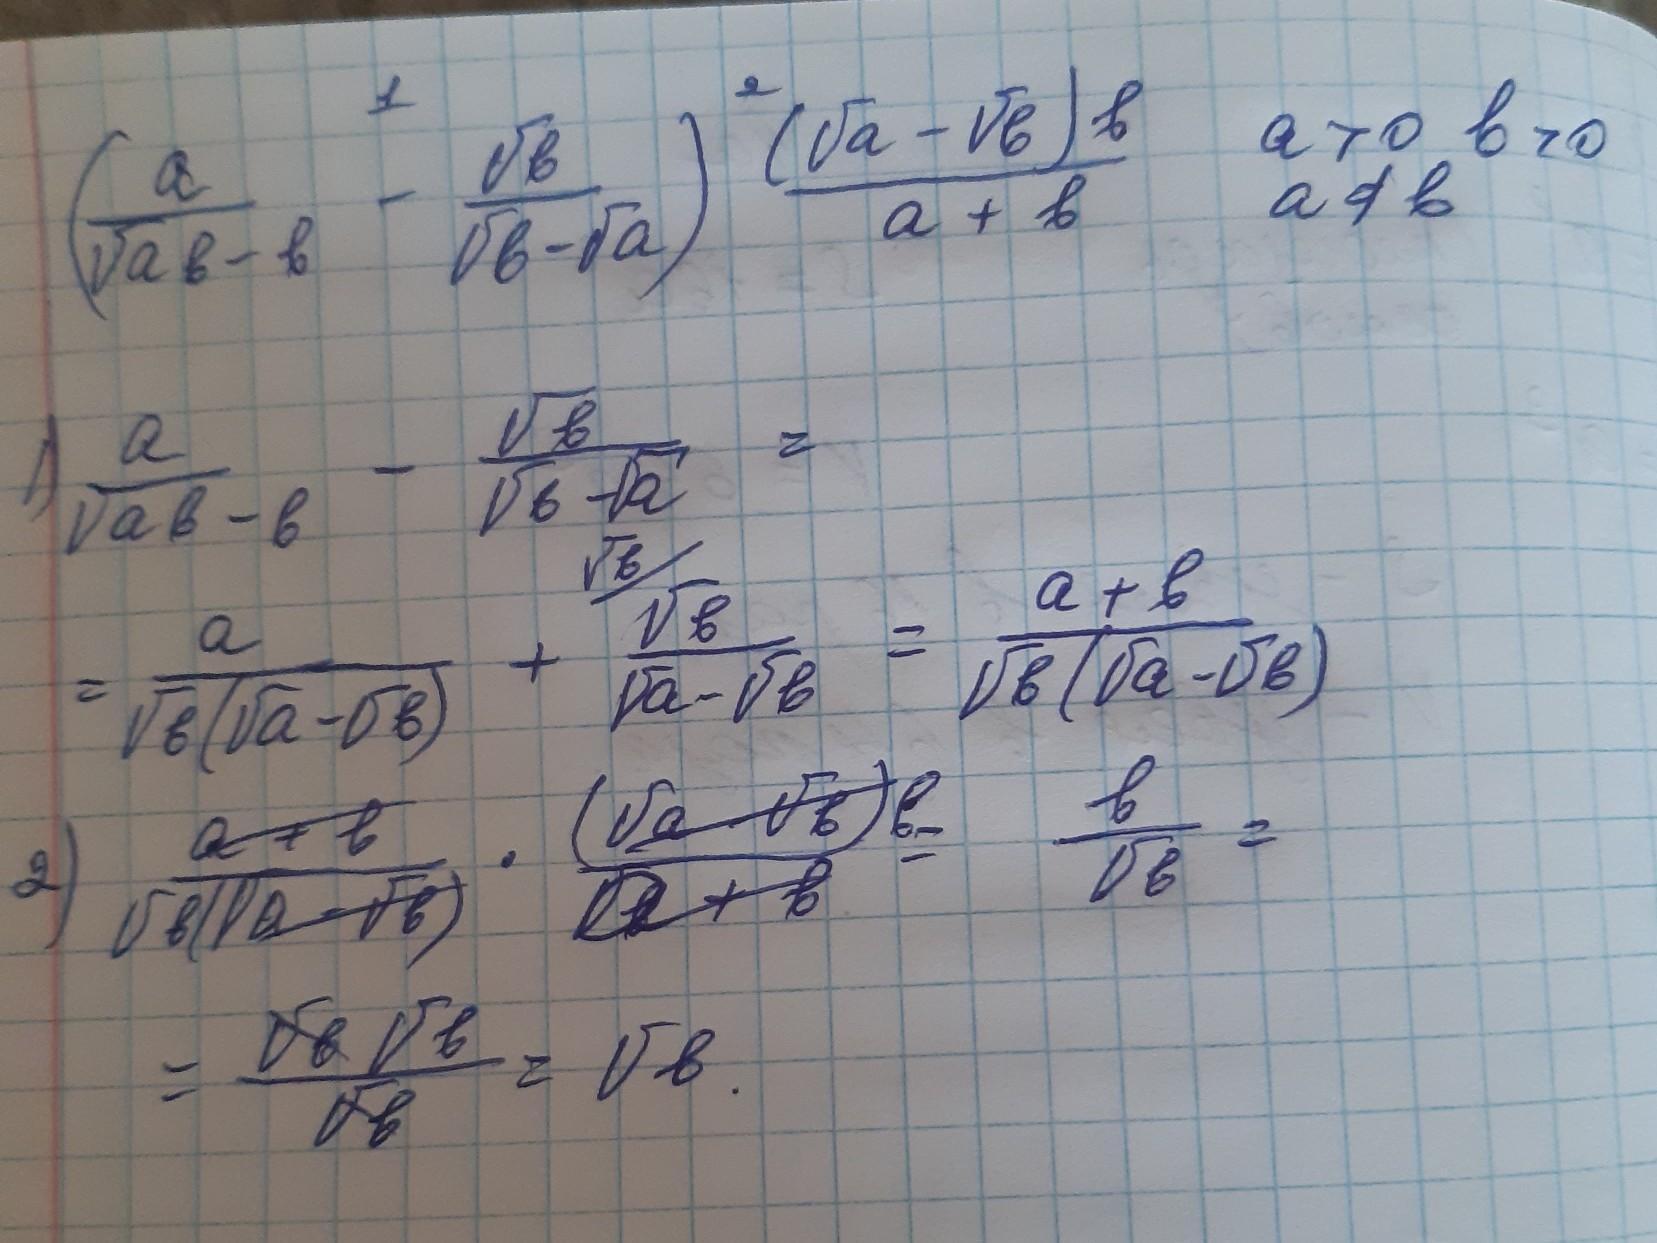 (a/(√ab - b) - √b/(√b - √a)) (√a - √b)b/(a + b) a > 0 b > 0
a ≠ b
1) a/(√ab - b) - √b/(√b - √a) =
= a/(√b(√a - √b)) + √b/ √b/(√a - √b) = (a + b)/(√b(√a - √b))
2) (a + b)/(√b(√a - √b)) · (√a - √b)b/(a + b) = b/√b =
= √b √b/√b = √b.